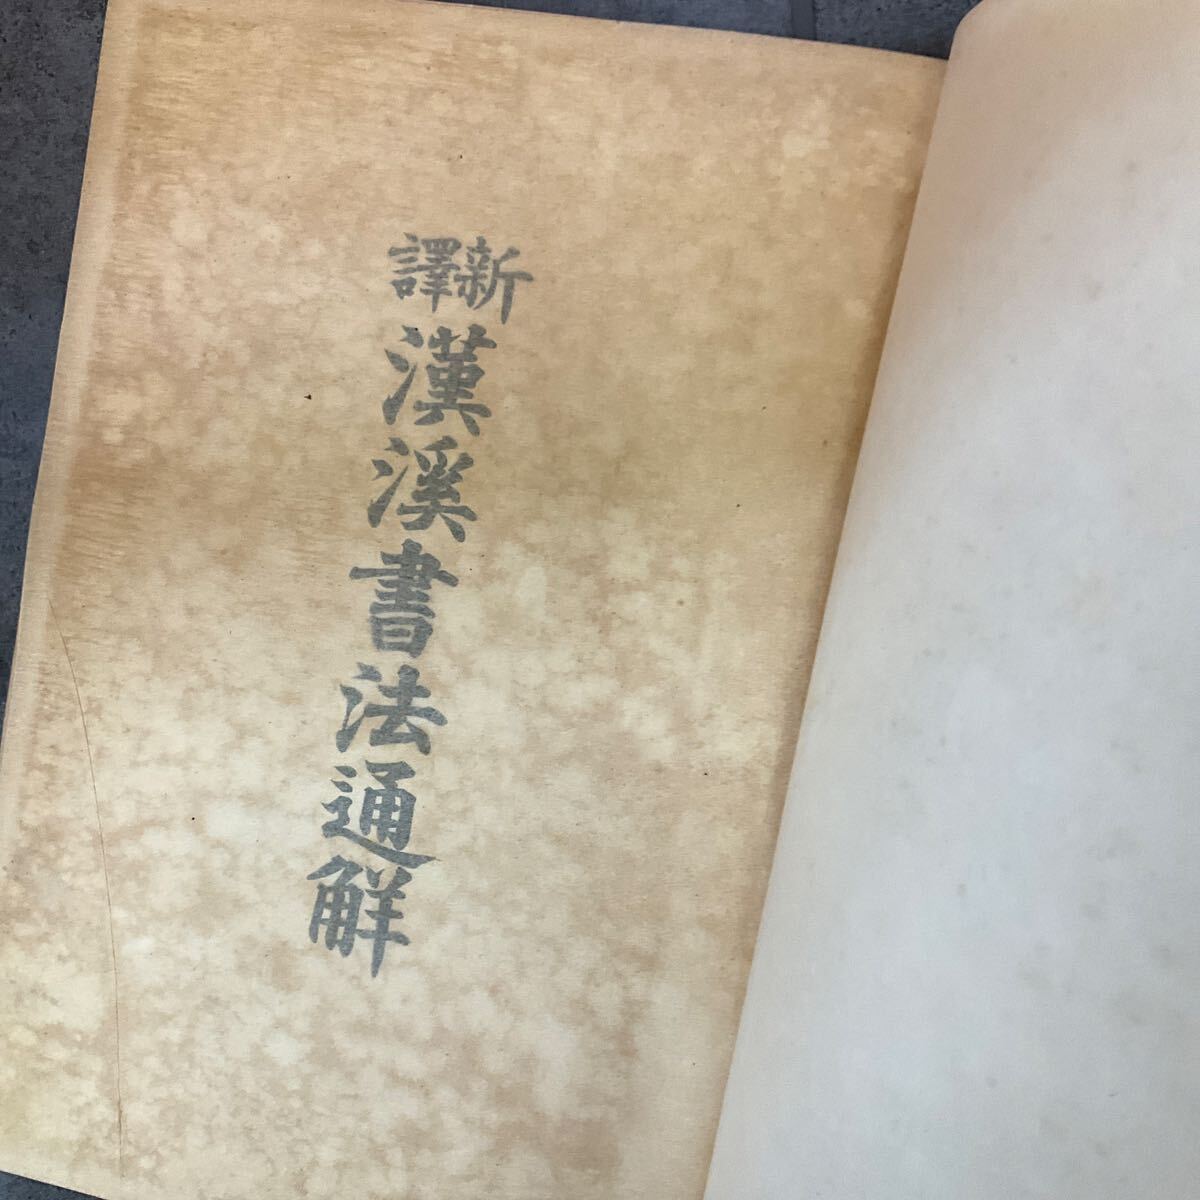 新譯
漢溪書法通觧